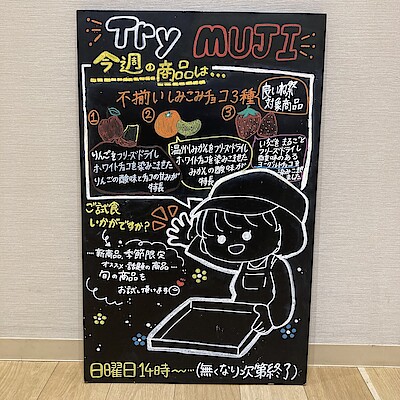 Try MUJI
今週の商品は…
不揃いしみこみチョコ3種
良い値祭
対象商品
①
りんごをフリーズドライし
ホワイトチョコを染みこませました
りんごの酸味とチョコの甘みが
特長
②
温州みかんをフリーズドライし
ホワイトチョコを染みこませました
みかんの酸味が
特長
③
いちごをまるごと
フリーズドライし
酸味のある
ヨーグルトチョコを
染みこませました
ご試食
いかがですか?
…新商品、季節限定
オススメ・話題の商品…
旬の商品を
お試し頂けます
日曜日14時〜…(無くなり次第終了)